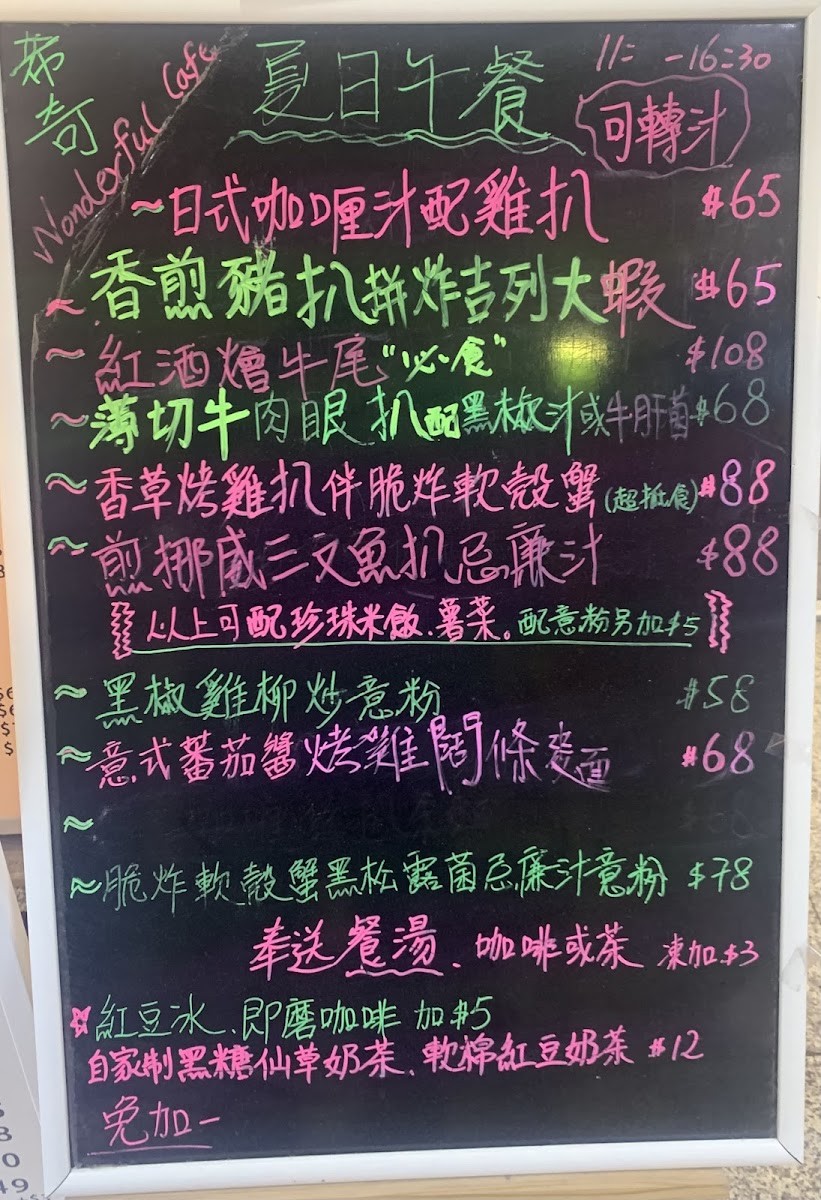 希奇
Wonderful Cafe
夏日午餐
11: -16:30
可轉汁
~日式咖喱汁配雞扒 $65
~香煎豬扒拼炸吉列大蝦 $65
~紅酒燴牛尾"必食" $108
~薄切牛肉眼扒配黑椒汁或牛肝菌 $68
~香草烤雞扒伴脆炸軟殼蟹(超抵食) $88
~煎挪威三文魚扒忌廉汁 $88
以上可配珍珠米飯.薯菜。配意粉另加$5
~黑椒雞柳炒意粉 $58
~意式蕃茄醬烤雞闊條麵 $68
~
~脆炸軟殼蟹黑松露菌忌廉汁意粉 $78
奉送餐湯、咖啡或茶 凍加$3
☆紅豆冰、即磨咖啡 加$5
自家制黑糖仙草奶茶、軟棉紅豆奶茶 $12
免加一